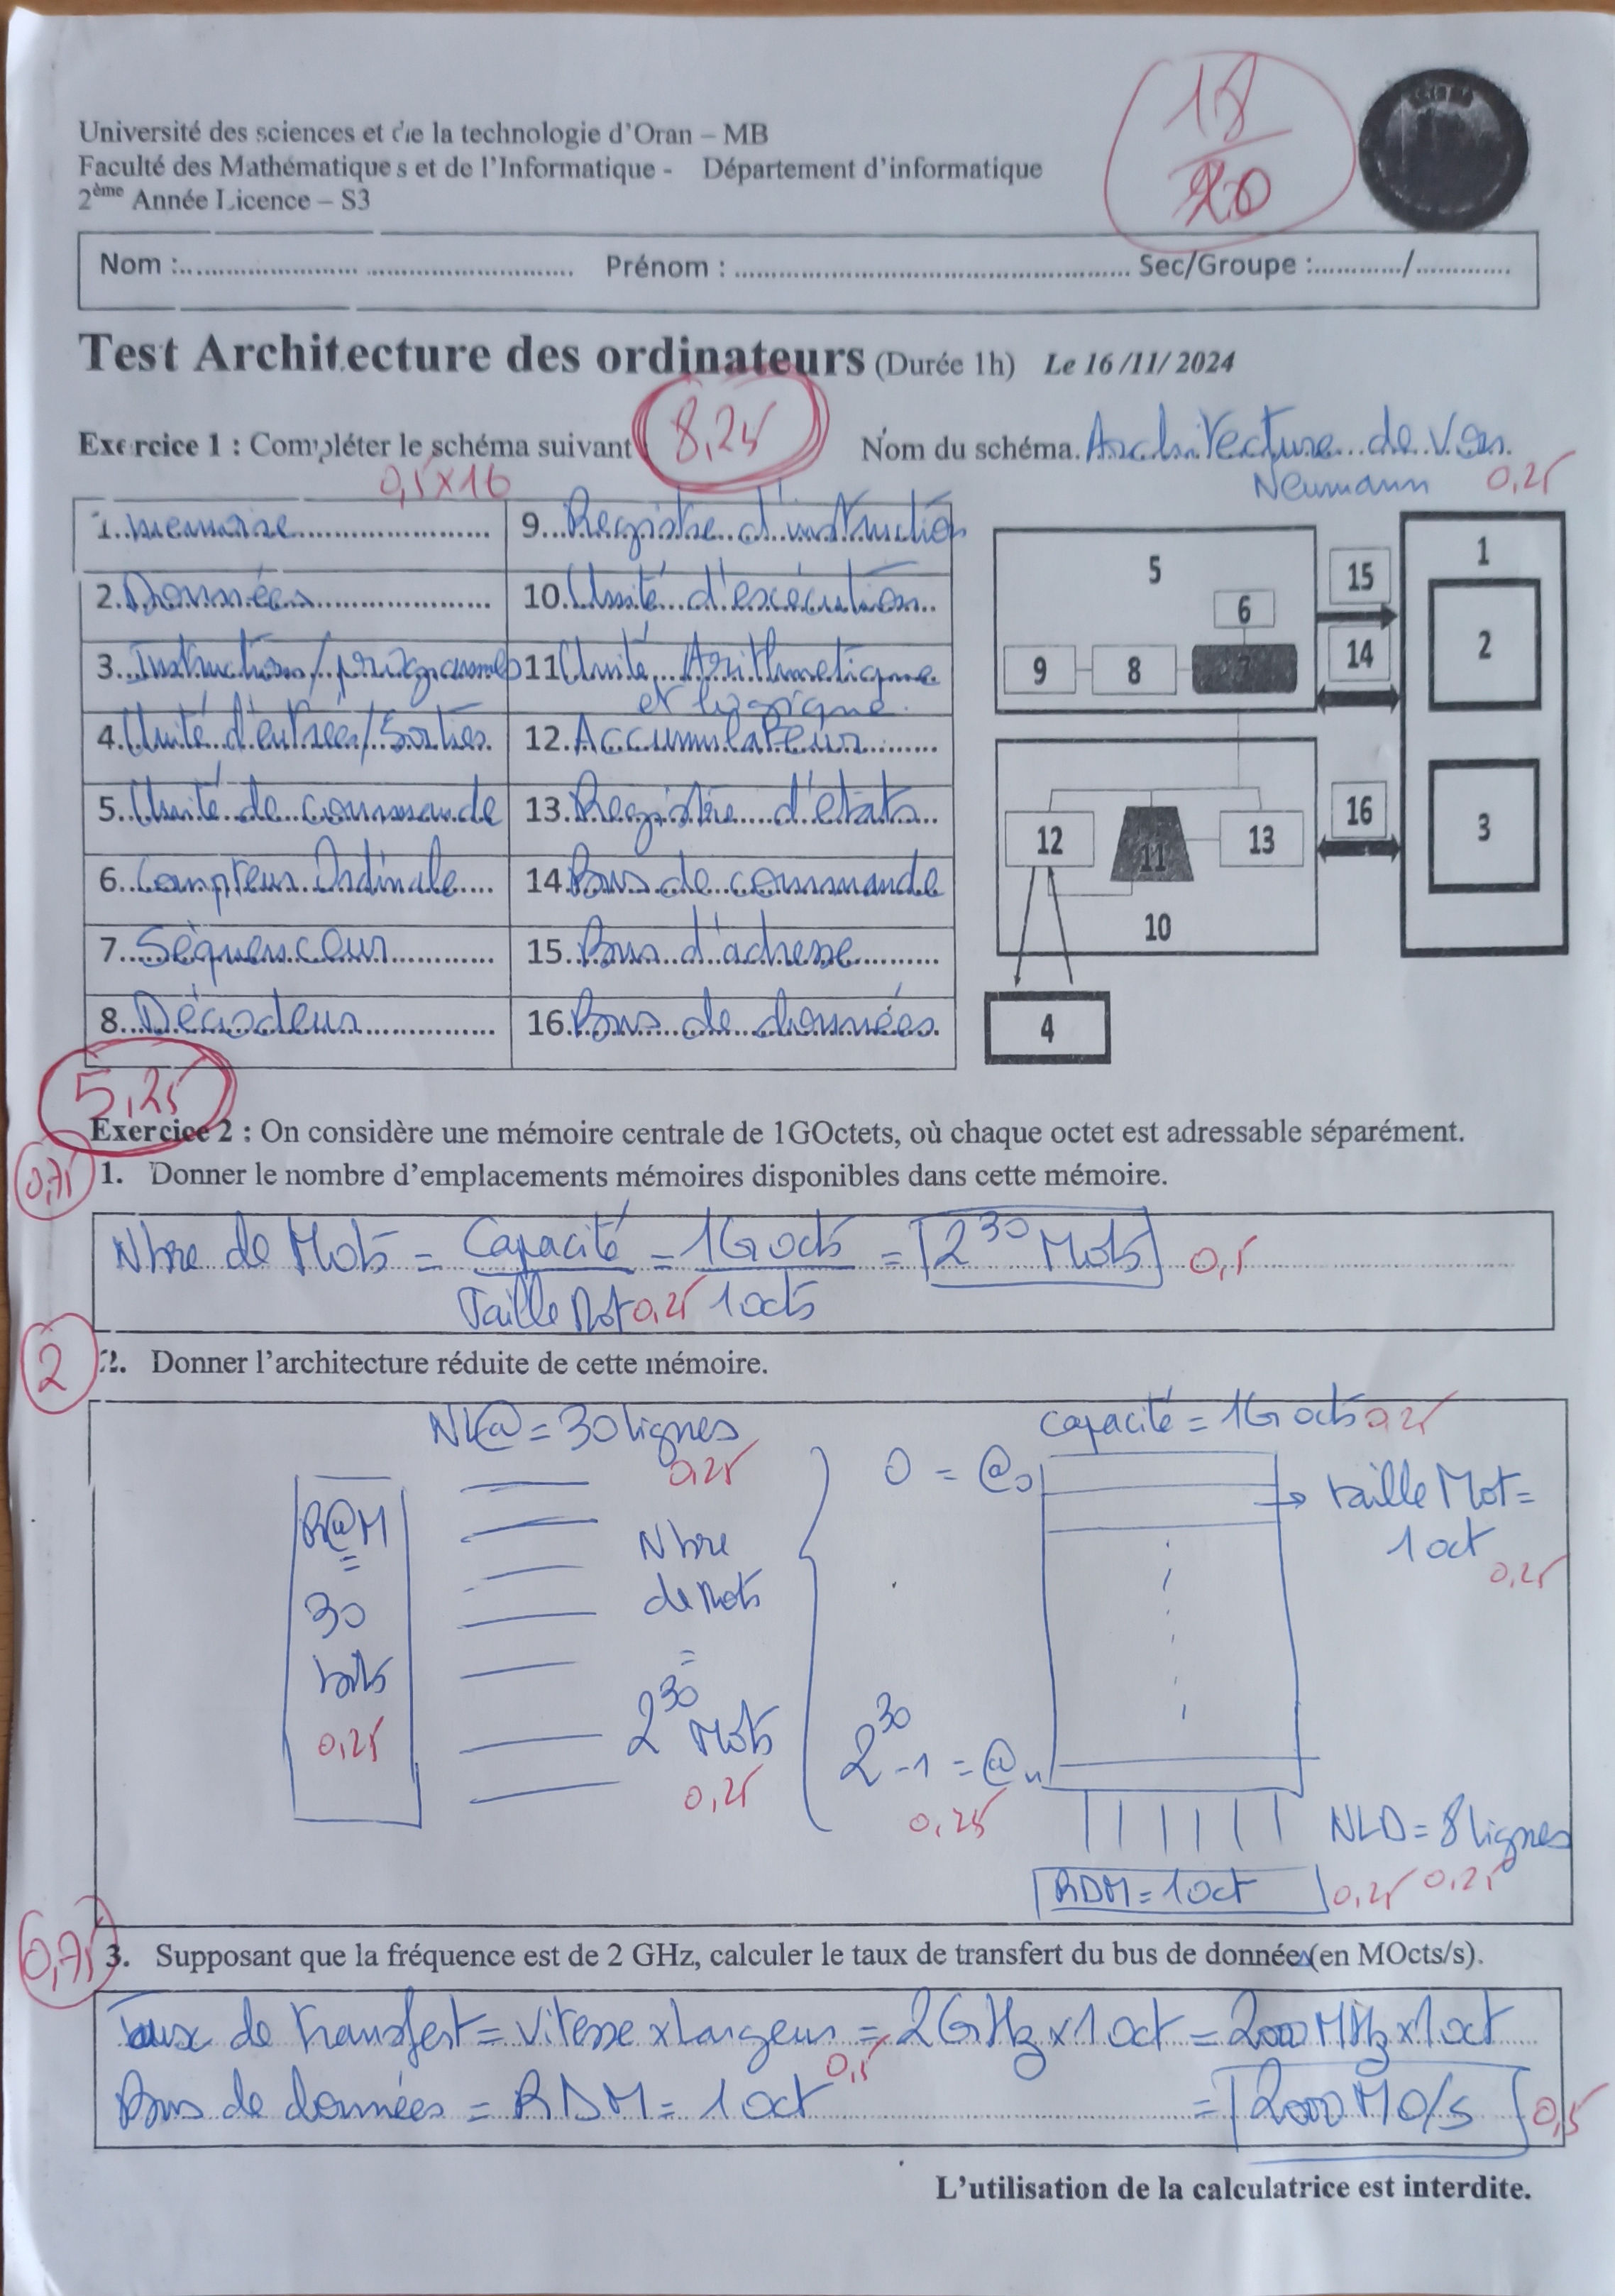 Université des sciences et de la technologie d'Oran – MB
Faculté des Mathématiques et de l'Informatique - Département d'informatique
2ème Année Licence – S3
18
20
Nom :.................... Prénom : .................... Sec/Groupe :............/.............
Test Architecture des ordinateurs (Durée 1h) Le 16 /11/ 2024
Exercice 1 : Compléter le schéma suivant : 8,25 Nom du schéma. Architecture de Von
Neumann 0,25
0,5x16
1. memoire
2. Données
3. Instructions/programmes
4. Unité d'entrées/Sorties
5. Unité de commande
6. Compteur Ordinale
7. Séquenceur
8. Décodeur
9. Registre d'instruction
10. Unité d'exécution
11 Unité Arithmetique
et logique
12. Accumulateur
13. Registre d'états
14. Bus de commande
15. Bus d'adresse
16. Bus de données
5 15 1
6
9 8 7 14 2
12 11 13 16 3
10
4
5,25
Exercice 2 : On considère une mémoire centrale de 1GOctets, où chaque octet est adressable séparément.
0,75 1. Donner le nombre d'emplacements mémoires disponibles dans cette mémoire.
Nbre de Mots = Capacité = 1G octs = 2^30 Mots 0,5
Taille Mot 0,25 1octs
2 2. Donner l'architecture réduite de cette mémoire.
NL@ = 30 lignes capacité = 1G octs 0,25
0,25 0 = @0 taille Mot =
R@M Nbre 1 oct
= de Mots 0,25
30 =
bits 2^30 Mots 2^30 -1 = @n
0,25 0,25 0,25
NLD = 8 lignes
RDM = 1oct 0,25 0,25
0,75 3. Supposant que la fréquence est de 2 GHz, calculer le taux de transfert du bus de donnée (en MOcts/s).
Taux de transfert = vitesse x largeur = 2GHz x 1 oct = 2000 MHz x 1oct
0,5
Bus de données = RDM = 1 oct = 2000 MO/s 0,5
L'utilisation de la calculatrice est interdite.